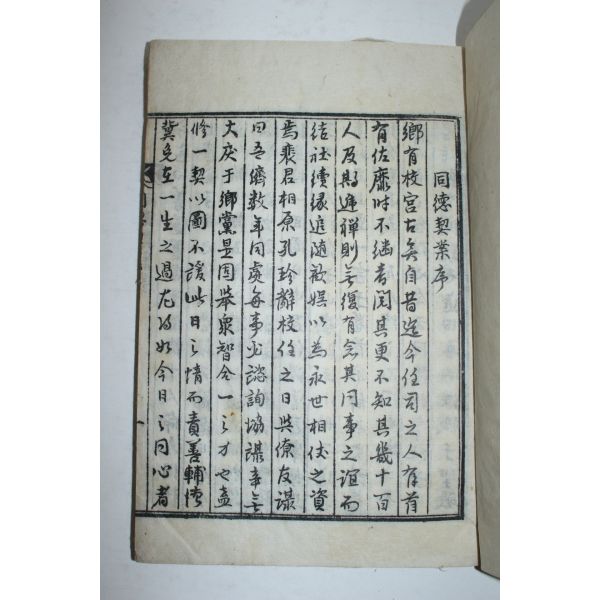 同德契案序
鄕有校宮古矣自昔迄今任司之人有首
有佐靡時不繼考閱其更不知其幾十百
人及期遞禪則無復有念其同事之誼而
結社續緣追隨歡娛以爲永世相仗之資
焉裴君相原孔珍辭校任之日與僚友謀
曰吾儕數年同處每事必諮詢協謀幸無
大戾于鄕黨是固萃衆智合一之才也盍
修一契以圖不諼此日之情而責善輔
冀免在一生之過尤如今日之同心者
一